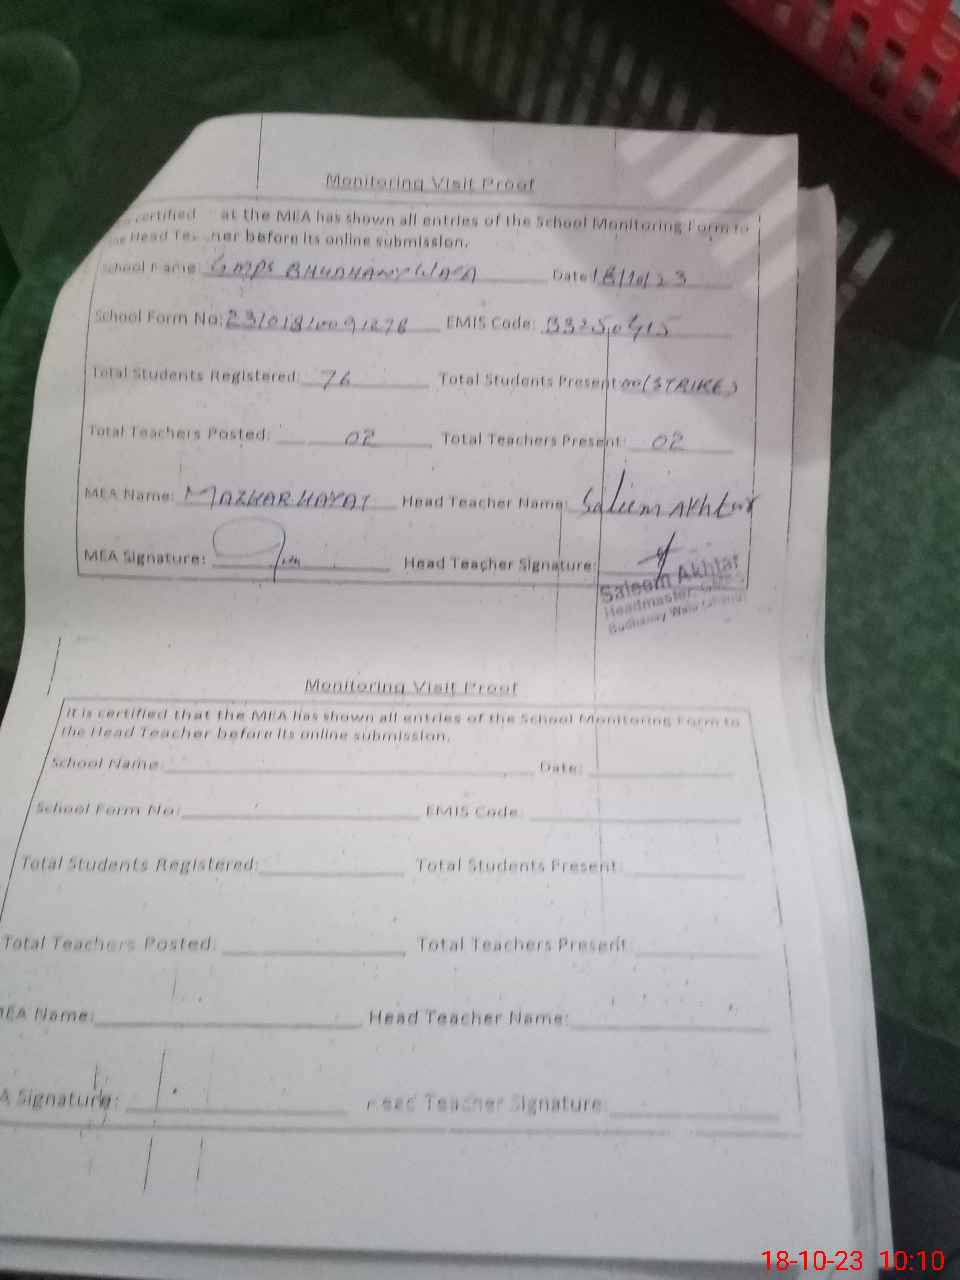 Monitoring Visit Proof
certified at the MEA has shown all entries of the School Monitoring Form to
the Head Teacher before its online submission.
School Name: GMPS BHUDHANY WALA Date 18/10/23
School Form No: EMIS Code:
Total Students Registered: 76 Total Students Present: 00 (STRIKE)
Total Teachers Posted: 02 Total Teachers Present: 02
MEA Name: MAZHAR HAYAT Head Teacher Name: Saleem Akhtar
MEA Signature: Head Teacher Signature:
Saleem Akhtar
Headmaster
Budhany Wala
Monitoring Visit Proof
It is certified that the MEA has shown all entries of the School Monitoring Form to
the Head Teacher before its online submission.
School Name: Date:
School Form No: EMIS Code:
Total Students Registered: Total Students Present:
Total Teachers Posted: Total Teachers Present:
MEA Name: Head Teacher Name:
A Signature: Head Teacher Signature:
18-10-23 10:10